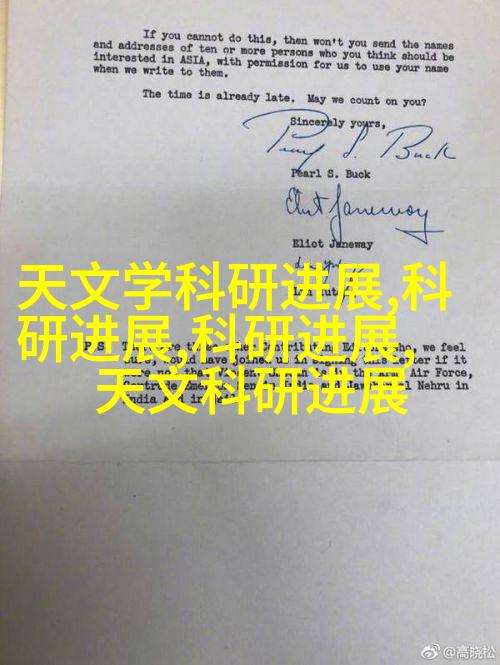 If you cannot do this, then won't you send the names
and addresses of ten or more persons who you think should be
interested in ASIA, with permission for us to use your name
when we write to them.
The time is already late. May we count on you?
Sincerely yours,
Pearl S. Buck
Pearl S. Buck
Eliot Janeway
Eliot Janeway
Lin Yutang
天文学科研进展,科
研进展,科研进展,
天文科研进展
P.S. we feel
sure, would have joined us in signing this letter if it
were not that is in the Army Air Force,
Gertrude in India and Jawaharlal Nehru in
India and in
@高晓松